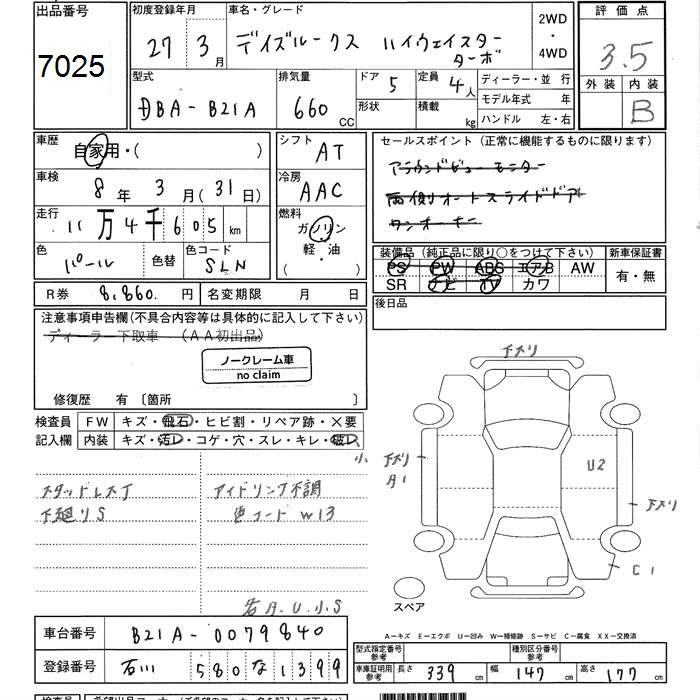 出品番号
7025
初度登録年月
27年3月
車名・グレード
デイズルークス ハイウェイスター
ターボ
2WD
・
4WD
評価点
3.5
外装 内装
B
型式
DBA-B21A
排気量
660 CC
ドア
5
形状
定員
4人
積載 kg
ディーラー・並行
モデル年式 年
ハンドル 左・右
車歴
自家用・( )
車検
8年 3月 (31日)
走行
11万4千605 km
色
パール
色替
色コード
SLN
シフト
AT
冷房
AAC
燃料
ガソリン
軽・油
( )
セールスポイント (正常に機能するものに限ります)
アラウンドビューモニター
両側オートスライドドア
ワンオーナー
装備品 (純正品に限り○をつけて下さい)
PS PW ABS エアB AW
SR ナビ TV カワ
新車保証書
有・無
後日品
R券 8,860.円
名変期限 月 日
注意事項申告欄(不具合内容等は具体的に記入して下さい)
ディーラー下取車 (AA初出品)
ノークレーム車
no claim
修復歴 有 〔箇所 〕
検査員
記入欄
FW キズ・飛石・ヒビ割・リペア跡・×要
内装 キズ・汚レ・コゲ・穴・スレ・キレ・破レ
小
スタッドレス丁
下廻りS
アイドリング不調
色コード W13
各A.U.小S
下ズリ
下ズリ
A1
U2
下ズリ
C1
スペア
A…キズ E…エクボ U…凹み W…補修跡 S…サビ C…腐食 XX…交換済
車台番号
B21A-0079840
登録番号
石川 580 な 1399
型式指定番号
参考
種別区分番号
参考
車庫証明用
参考
長さ 339 cm 幅 147 cm 高さ 177 cm